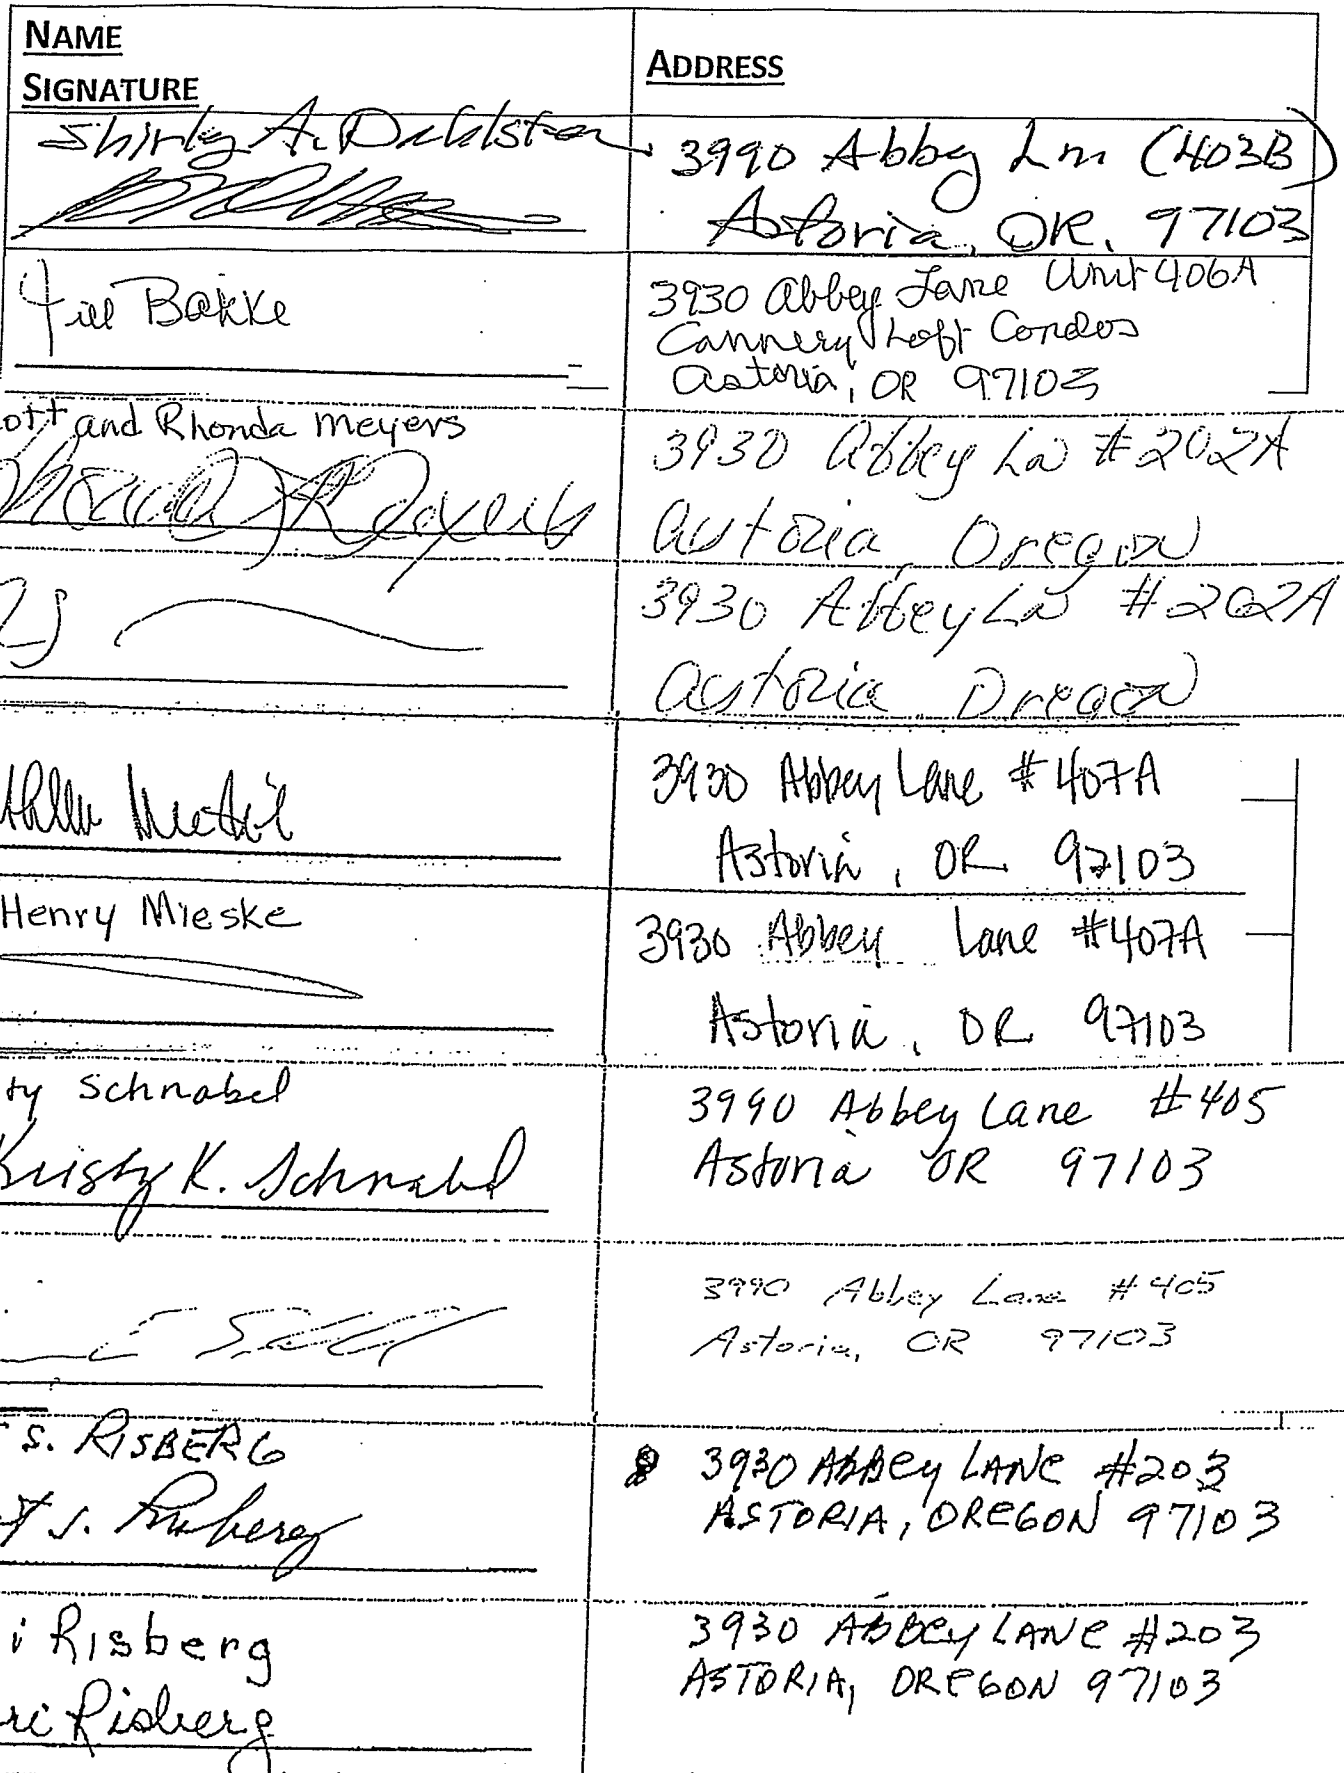 NAME
SIGNATURE
ADDRESS
Shirley A.
3990 Abby Ln (403B)
Astoria, OR. 97103
Jill Bakke
3930 Abbey Lane Unit 406A
Cannery Loft Condos
Astoria, OR 97103
ott and Rhonda Meyers
3930 Abbey Ln #202A
Astoria, Oregon
3930 Abbey Ln #202A
Astoria Oregon
3930 Abbey Lane #407A
Astoria, OR 97103
Henry Mieske
3930 Abbey Lane #407A
Astoria, OR 97103
ty Schnabel
Kristy K. Schnabel
3990 Abbey Lane #405
Astoria OR 97103
3990 Abbey Lane #405
Astoria, OR 97103
S. RISBERG
t S. Risberg
3930 ABBEY LANE #203
ASTORIA, OREGON 97103
i Risberg
ri Risberg
3930 ABBEY LANE #203
ASTORIA, OREGON 97103